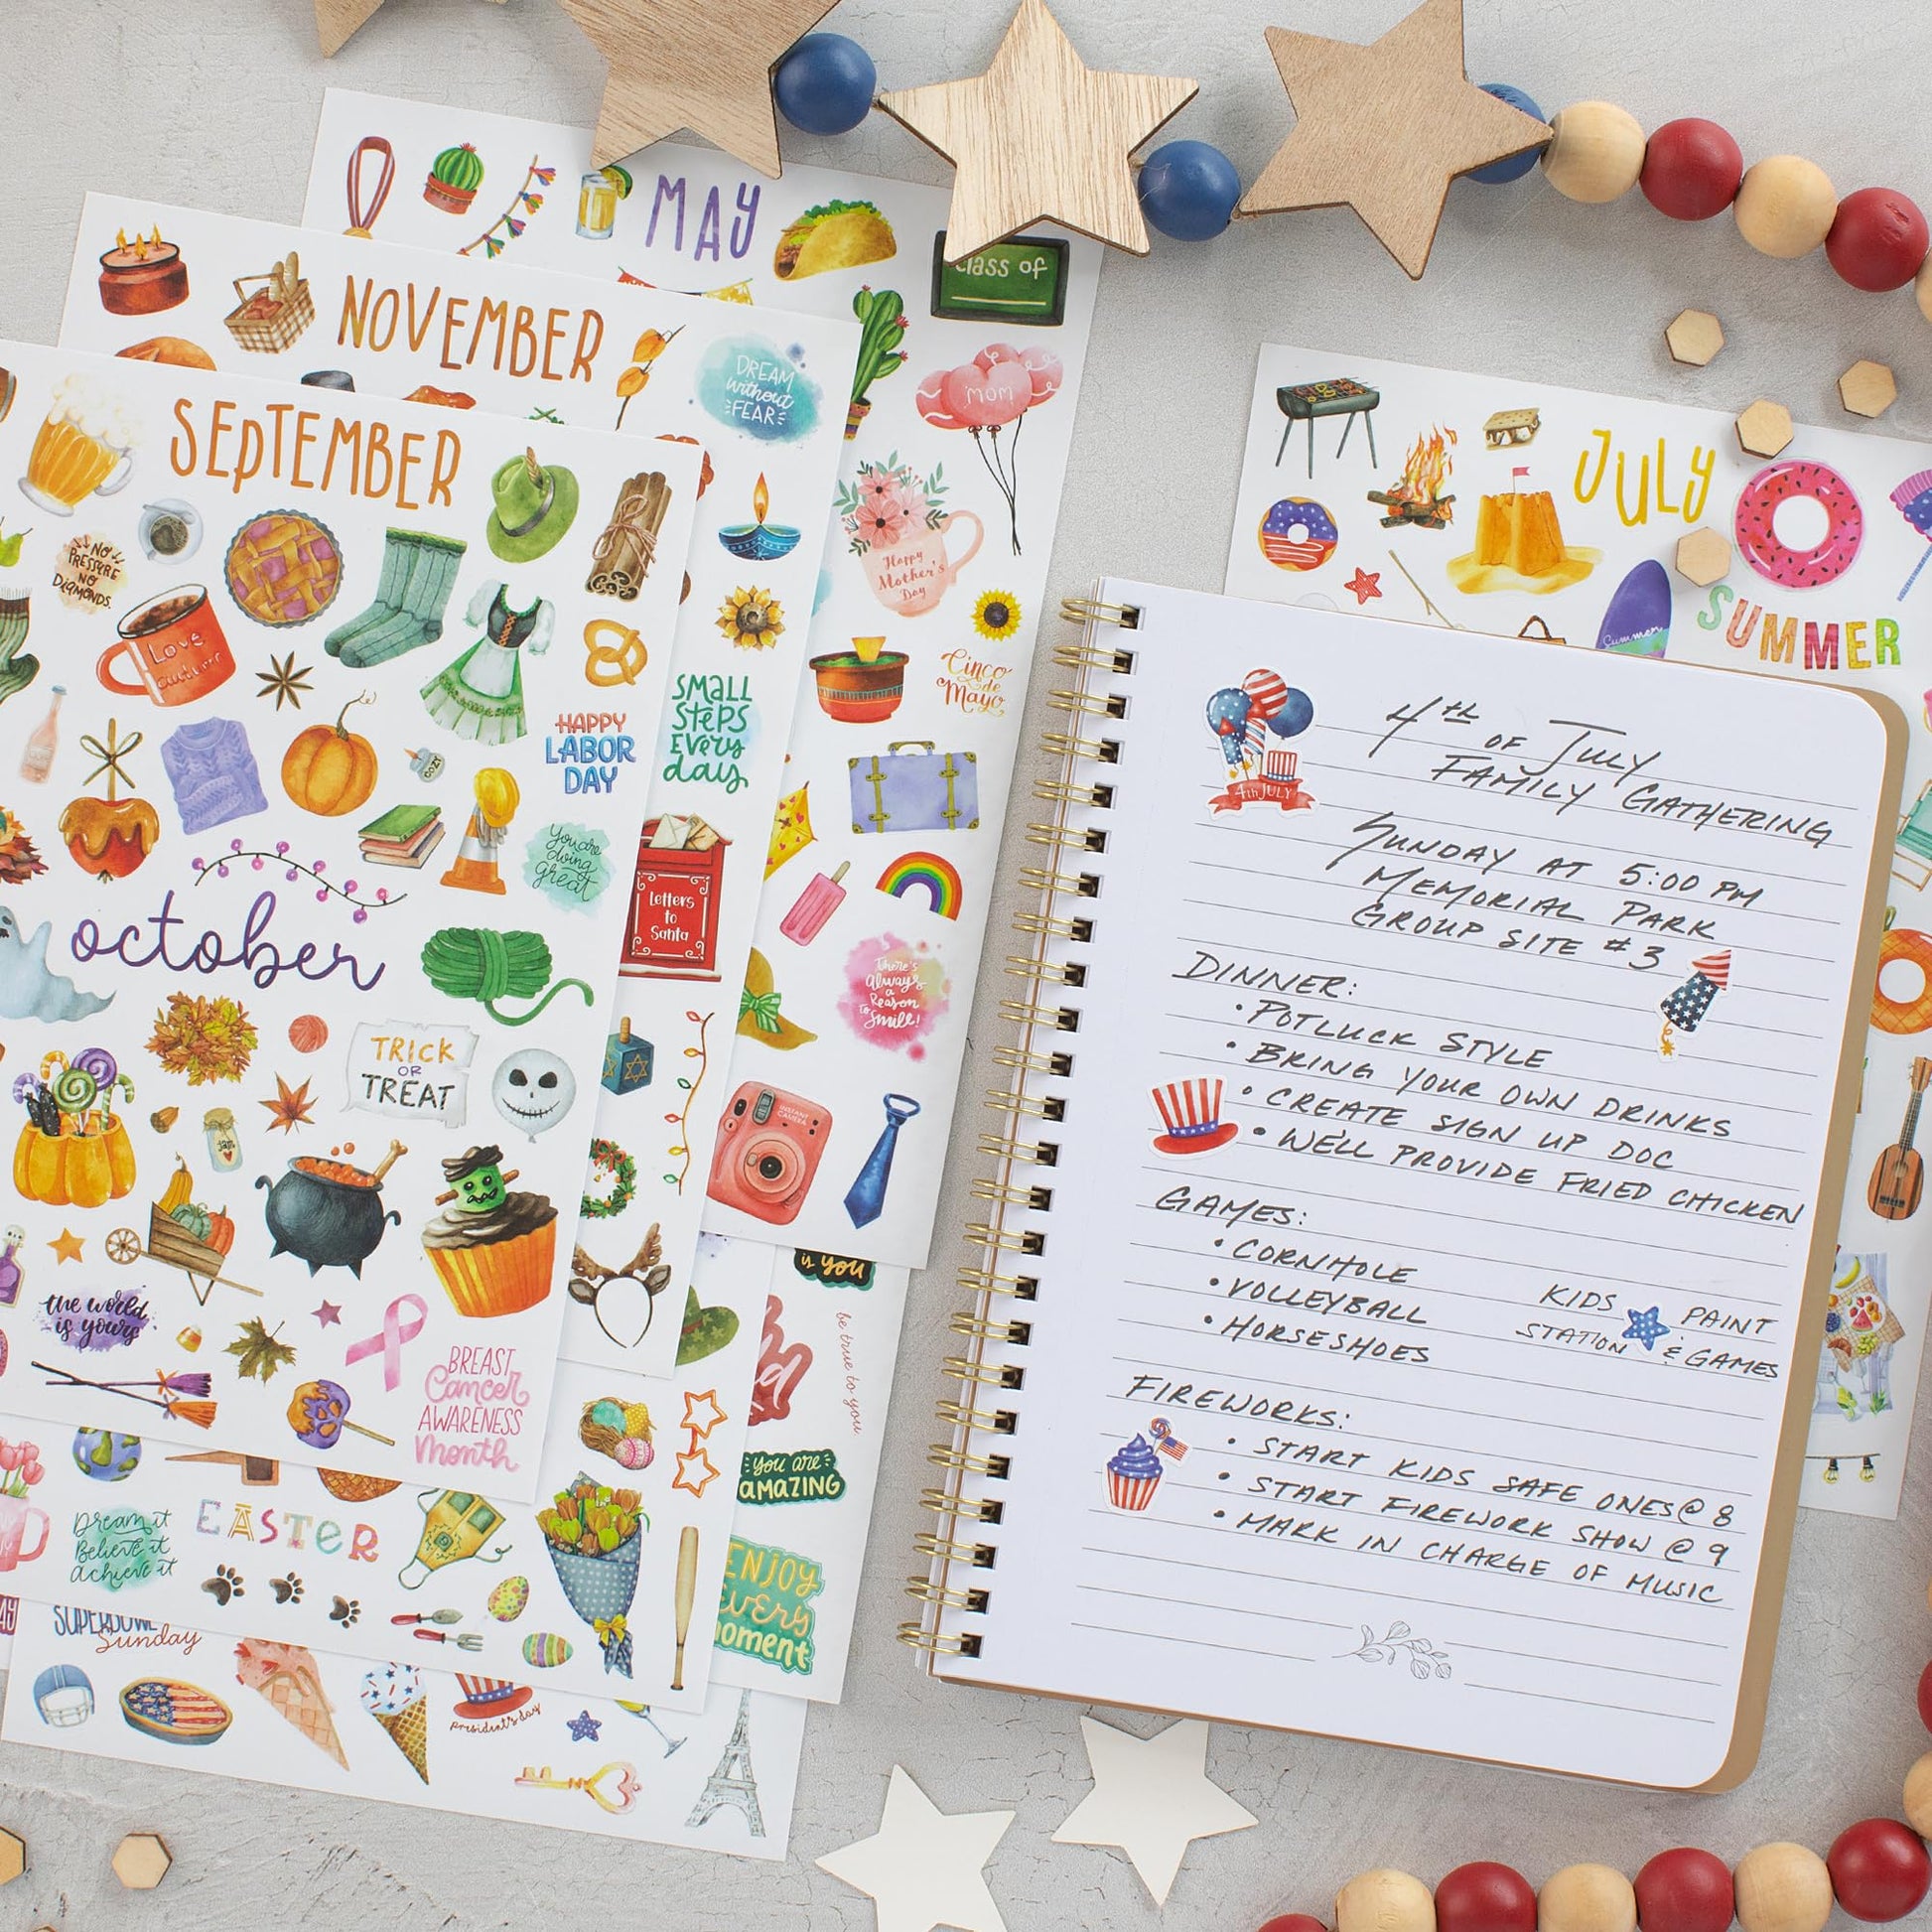 MAY
class of
NOVEMBER
DREAM
without
FEAR
MOM
SEPTEMBER
NO
PRESSURE
NO
DIAMONDS.
Love
autumn
Happy
Mother's
Day
Cinco
de
Mayo
HAPPY
LABOR
DAY
SMALL
STEPS
EVERY
day
COZY
You are
doing
great
Letters
to
Santa
There's
Always
a
Reason
to
Smile!
october
TRICK
OR
TREAT
jam
INSTANT
CAMERA
the world
is yours
BREAST
Cancer
AWARENESS
Month
is you
be true to you
you are
AMAZING
Dream it
Believe it
achieve it
EASTER
ENJOY
every
moment
SUPERBOWL
Sunday
president's day
JULY
SUMMER
Summer
4th JULY
4th OF JULY
FAMILY GATHERING
SUNDAY AT 5:00 PM
MEMORIAL PARK
GROUP SITE #3
DINNER:
• POTLUCK STYLE
• BRING YOUR OWN DRINKS
• CREATE SIGN UP DOC
• WE'LL PROVIDE FRIED CHICKEN
GAMES:
• CORNHOLE
• VOLLEYBALL
• HORSESHOES
KIDS
STATION
PAINT
& GAMES
FIREWORKS:
• START KIDS SAFE ONES @ 8
• START FIREWORK SHOW @ 9
• MARK IN CHARGE OF MUSIC